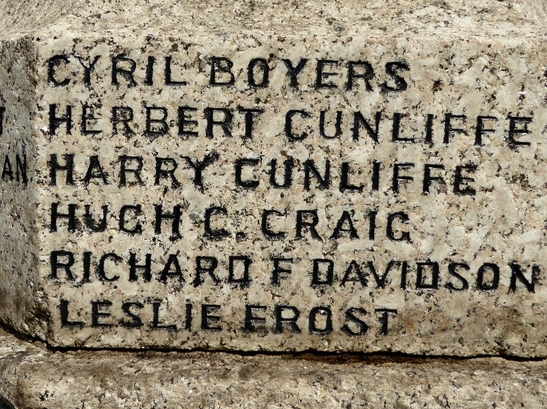 CYRIL BOYERS
HERBERT CUNLIFFE
HARRY CUNLIFFE
HUGH C. CRAIG
RICHARD F DAVIDSON
LESLIE EROST